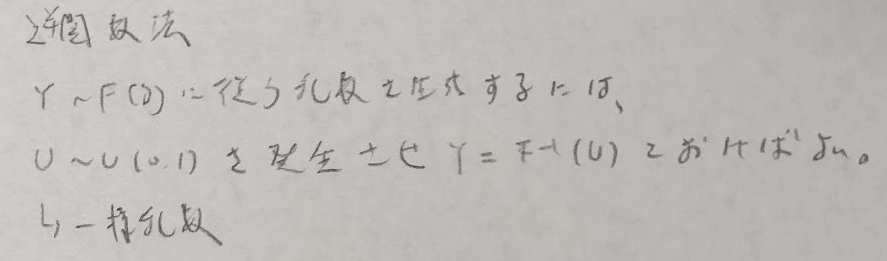 逆関数法
Y~F(y)に従う乱数を生成するには、
U~U(0,1)を発生させY=F⁻¹(U)とおけばよい。
↳一様乱数